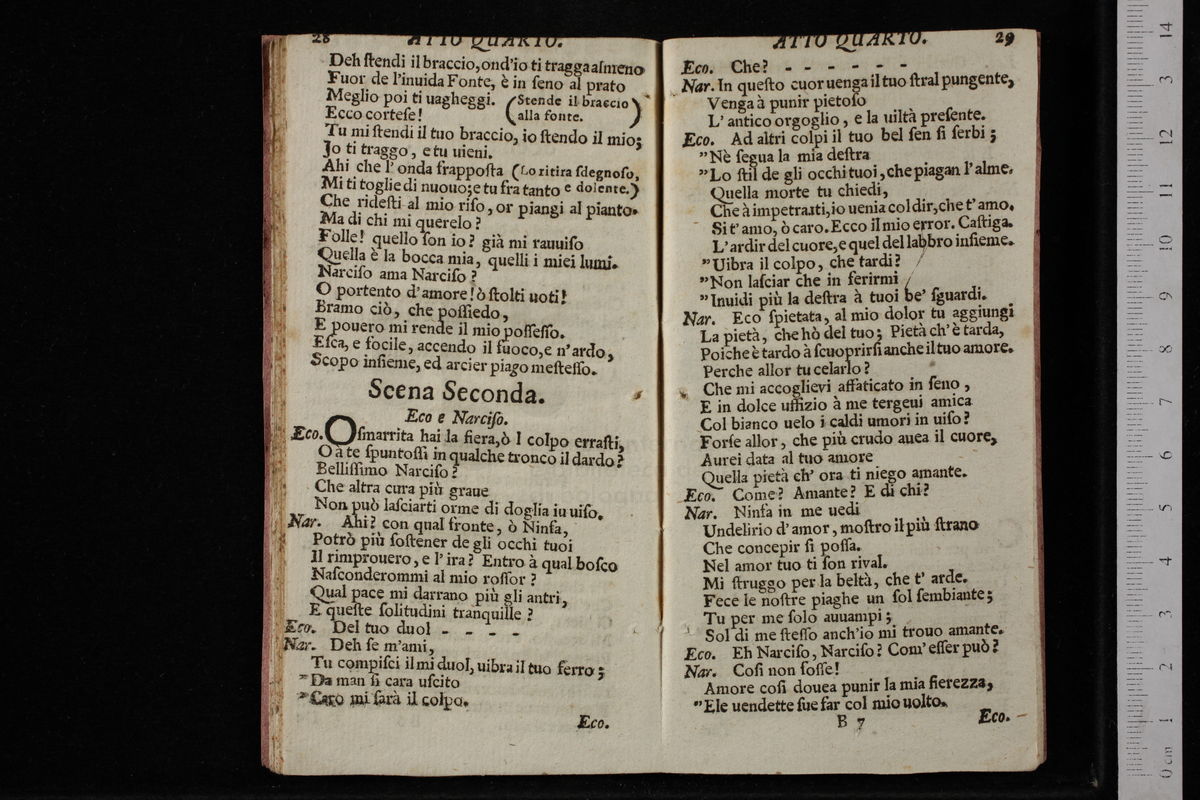 28 ATTO QUARTO.
Deh ſtendi il braccio, ond'io ti tragga almeno
Fuor de l'inuida Fonte, è in ſeno al prato
Meglio poi ti uagheggi. (Stende il braccio
Ecco corteſe! alla fonte.)
Tu mi ſtendi il tuo braccio, io ſtendo il mio;
Jo ti traggo, e tu uieni.
Ahi che l'onda frappoſta (Lo ritira ſdegnoſo,
Mi ti toglie di nuouo; e tu fra tanto e dolente.)
Che rideſti al mio riſo, or piangi al pianto.
Ma di chi mi querelo?
Folle! quello ſon io? già mi rauuiſo
Quella è la bocca mia, quelli i miei lumi.
Narciſo ama Narciſo?
O portento d'amore! ò ſtolti uoti!
Bramo ciò, che poſſiedo,
E pouero mi rende il mio poſſeſſo.
Eſca, e focile, accendo il fuoco, e n'ardo,
Scopo inſieme, ed arcier piago meſteſſo.
Scena Seconda.
Eco e Narciſo.
Eco. O ſmarrita hai la fiera, ò l colpo erraſti,
O à te ſpuntoſſi in qualche tronco il dardo?
Belliſſimo Narciſo?
Che altra cura più graue
Non può laſciarti orme di doglia iu uiſo.
Nar. Ahi? con qual fronte, ò Ninfa,
Potrò più ſoſtener de gli occhi tuoi
Il rimprouero, e l'ira? Entro à qual boſco
Naſconderommi al mio roſſor?
Qual pace mi darrano più gli antri,
E queſte ſolitudini tranquille?
Eco. Del tuo duol - - - -
Nar. Deh ſe m'ami,
Tu compiſci il mi duol, uibra il tuo ferro;
"Da man ſi cara uſcito
"Caro mi ſarà il colpo.
Eco.
ATTO QUARTO. 29
Eco. Che? - - - - - -
Nar. In queſto cuor uenga il tuo ſtral pungente,
Venga à punir pietoſo
L'antico orgoglio, e la uiltà preſente.
Eco. Ad altri colpi il tuo bel ſen ſi ſerbi;
"Nè ſegua la mia deſtra
"Lo ſtil de gli occhi tuoi, che piagan l'alme.
Quella morte tu chiedi,
Che à impetrarti, io uenia col dir, che t'amo.
Si t'amo, ò caro. Ecco il mio error. Caſtiga.
L'ardir del cuore, e quel del labbro inſieme.
"Uibra il colpo, che tardi?
"Non laſciar che in ferirmi
"Inuidi più la deſtra à tuoi be' ſguardi.
Nar. Eco ſpietata, al mio dolor tu aggiungi
La pietà, che hò del tuo; Pietà ch'è tarda,
Poiche è tardo à ſcuoprirſi anche il tuo amore.
Perche allor tu celarlo?
Che mi accoglievi affaticato in ſeno,
E in dolce uffizio à me tergeui amica
Col bianco uelo i caldi umori in uiſo?
Forſe allor, che più crudo auea il cuore,
Aurei data al tuo amore
Quella pietà ch'ora ti niego amante.
Eco. Come? Amante? E di chi?
Nar. Ninfa in me uedi
Undelirio d'amor, moſtro il più ſtrano
Che concepir ſi poſſa.
Nel amor tuo ti ſon rival.
Mi ſtruggo per la beltà, che t'arde.
Fece le noſtre piaghe un ſol ſembiante;
Tu per me ſolo auuampi;
Sol di me ſteſſo anch'io mi trouo amante.
Eco. Eh Narciſo, Narciſo? Com'eſſer può?
Nar. Coſi non foſſe!
Amore coſi douea punir la mia fierezza,
"Ele uendette ſue far col mio uolto.
B 7 Eco.
0 cm 1 2 3 4 5 6 7 8 9 10 11 12 3 14